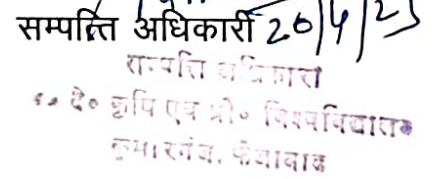 सम्पत्ति अधिकारी 20/4/23
सम्पत्ति अधिकारी
न० दे० कृषि एवं प्रौ० विश्वविद्यालय
कुमारगंज, फैजाबाद